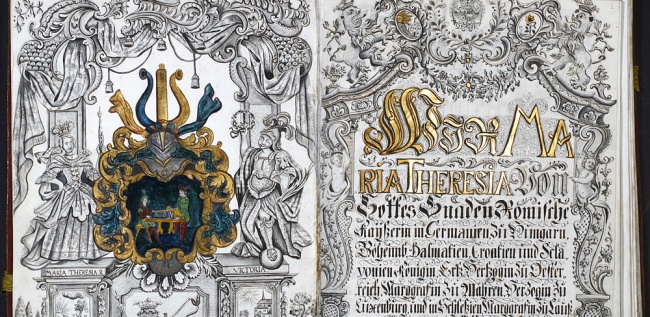 MARIA THERESIA R
VICTORIA
WIR MA
RIA THERESIA von
Gottes Gnaden Römische
Kaÿßerin in Germanien Zu Hungarn
Böheimb Dalmatien Croatien und Scla
vonien Königin Ertz Herzogin zu Oester,
reich Marggrafin zu Mähren Herzogin zu
Luxenburg, und in Schleßien Marggrafin zu